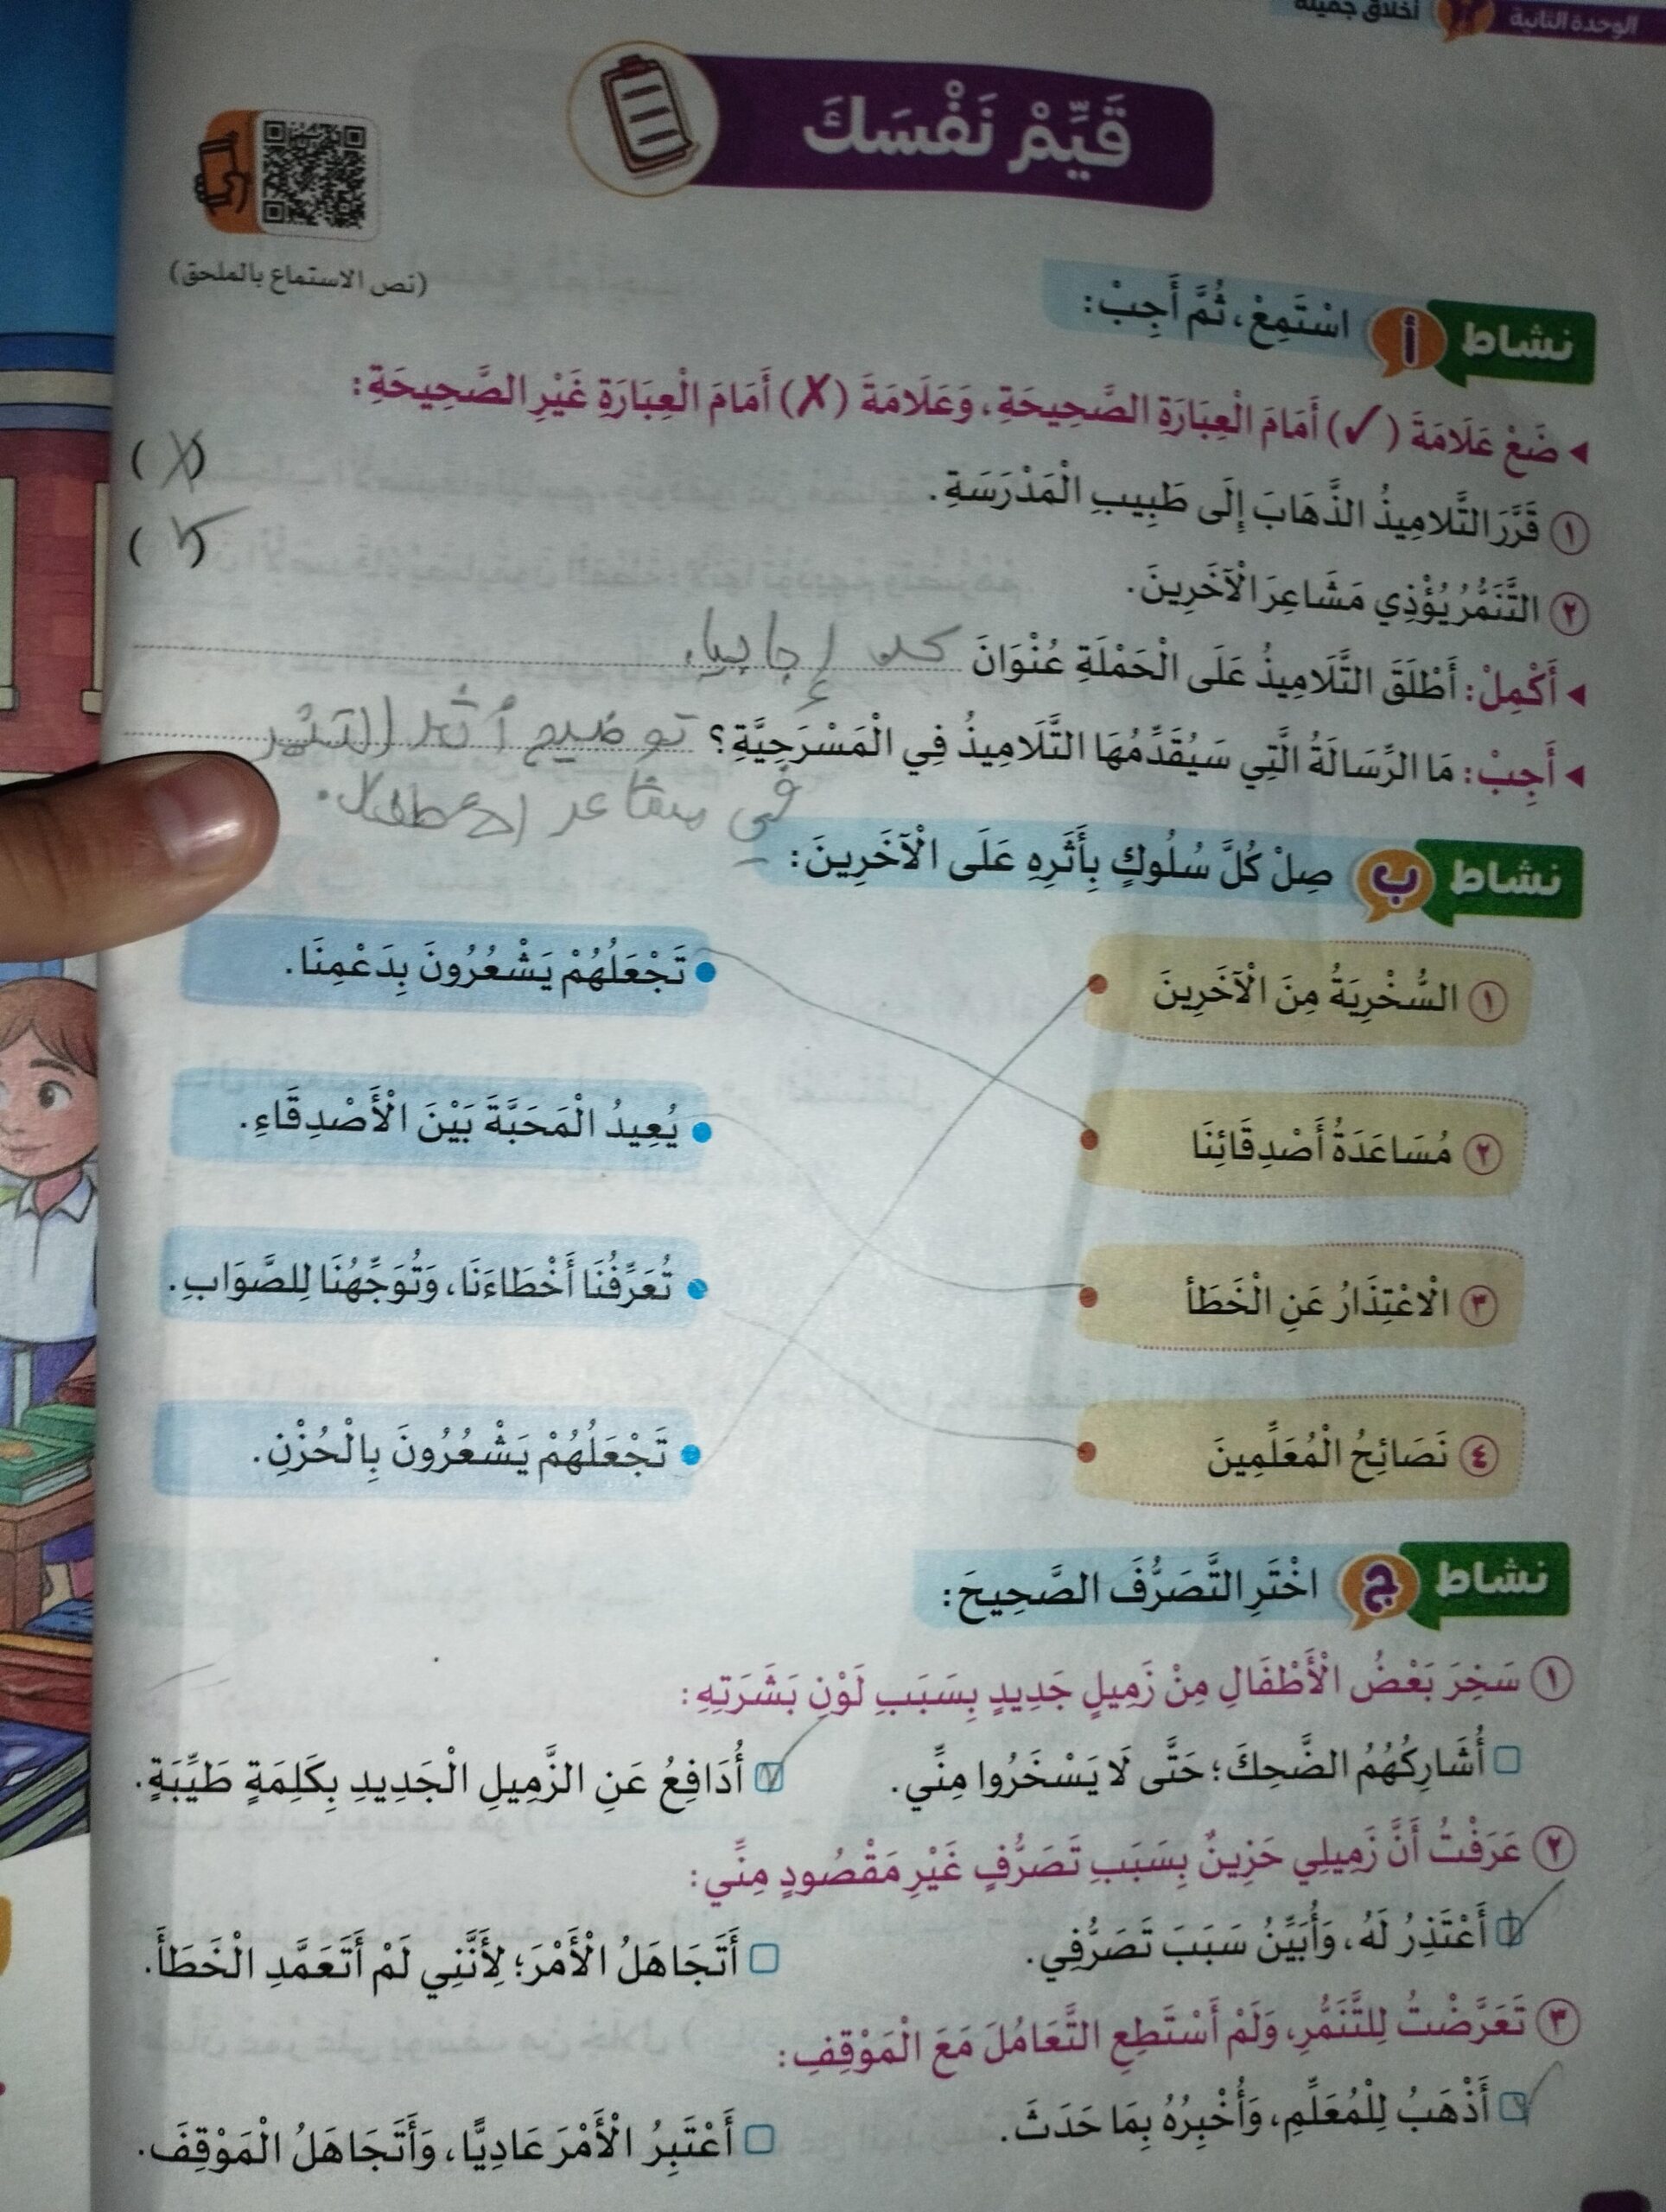 الوحدة الثانية ٢ أخلاق جميلة
قَيِّمْ نَفْسَكَ
(نص الاستماع بالملحق)
نشاط أ اسْتَمِعْ، ثُمَّ أَجِبْ:
◂ ضَعْ عَلَامَةَ (✓) أَمَامَ الْعِبَارَةِ الصَّحِيحَةِ، وَعَلَامَةَ (✗) أَمَامَ الْعِبَارَةِ غَيْرِ الصَّحِيحَةِ:
١ قَرَّرَ التَّلَامِيذُ الذَّهَابَ إِلَى طَبِيبِ الْمَدْرَسَةِ. (✗)
٢ التَّنَمُّرُ يُؤْذِي مَشَاعِرَ الْآخَرِينَ. (✓)
◂ أَكْمِلْ: أَطْلَقَ التَّلَامِيذُ عَلَى الْحَمْلَةِ عُنْوَانَ كن إجابيا.
◂ أَجِبْ: مَا الرِّسَالَةُ الَّتِي سَيُقَدِّمُهَا التَّلَامِيذُ فِي الْمَسْرَحِيَّةِ؟ توضيح أثر التنمر
في مشاعر الأطفال.
نشاط ب صِلْ كُلَّ سُلُوكٍ بِأَثَرِهِ عَلَى الْآخَرِينَ:
١ السُّخْرِيَةُ مِنَ الْآخَرِينَ تَجْعَلُهُمْ يَشْعُرُونَ بِدَعْمِنَا.
٢ مُسَاعَدَةُ أَصْدِقَائِنَا يُعِيدُ الْمَحَبَّةَ بَيْنَ الْأَصْدِقَاءِ.
٣ الْاعْتِذَارُ عَنِ الْخَطَأ تُعَرِّفُنَا أَخْطَاءَنَا، وَتُوَجِّهُنَا لِلصَّوَابِ.
٤ نَصَائِحُ الْمُعَلِّمِينَ تَجْعَلُهُمْ يَشْعُرُونَ بِالْحُزْنِ.
نشاط ج اخْتَرِ التَّصَرُّفَ الصَّحِيحَ:
١ سَخِرَ بَعْضُ الْأَطْفَالِ مِنْ زَمِيلٍ جَدِيدٍ بِسَبَبِ لَوْنِ بَشَرَتِهِ:
أُشَارِكُهُمُ الضَّحِكَ؛ حَتَّى لَا يَسْخَرُوا مِنِّي. ✓ أُدَافِعُ عَنِ الزَّمِيلِ الْجَدِيدِ بِكَلِمَةٍ طَيِّبَةٍ.
٢ عَرَفْتُ أَنَّ زَمِيلِي حَزِينٌ بِسَبَبِ تَصَرُّفٍ غَيْرِ مَقْصُودٍ مِنِّي:
✓ أَعْتَذِرُ لَهُ، وَأُبَيِّنُ سَبَبَ تَصَرُّفِي. أَتَجَاهَلُ الْأَمْرَ؛ لِأَنَّنِي لَمْ أَتَعَمَّدِ الْخَطَأَ.
٣ تَعَرَّضْتُ لِلتَّنَمُّرِ، وَلَمْ أَسْتَطِعِ التَّعَامُلَ مَعَ الْمَوْقِفِ:
✓ أَذْهَبُ لِلْمُعَلِّمِ، وَأُخْبِرُهُ بِمَا حَدَثَ. أَعْتَبِرُ الْأَمْرَ عَادِيًّا، وَأَتَجَاهَلُ الْمَوْقِفَ.